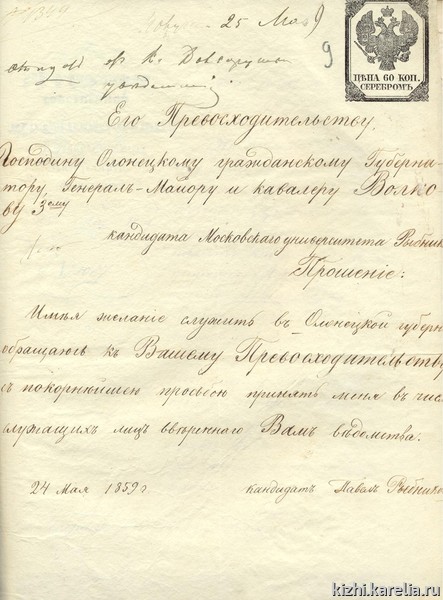 25 Мая
9
ЦѢНА 60 КОП.
СЕРЕБРОМЪ
Его Превосходительству,
Господину Олонецкому гражданскому Губерна-
тору, Генералъ-Майору и кавалеру Волко-
ву 3ему
кандидата Московскаго университета Рыбник
Прошеніе:
Имѣя желаніе служить въ Олонецкой губерн
обращаюсь къ Вашему Превосходительству
съ покорнѣйшею просьбою принять меня въ чис
служащихъ лицъ ввѣреннаго Вамъ вѣдомства.
24 Мая 1859 г
кандидатъ Павелъ Рыбник
kizhi.karelia.ru